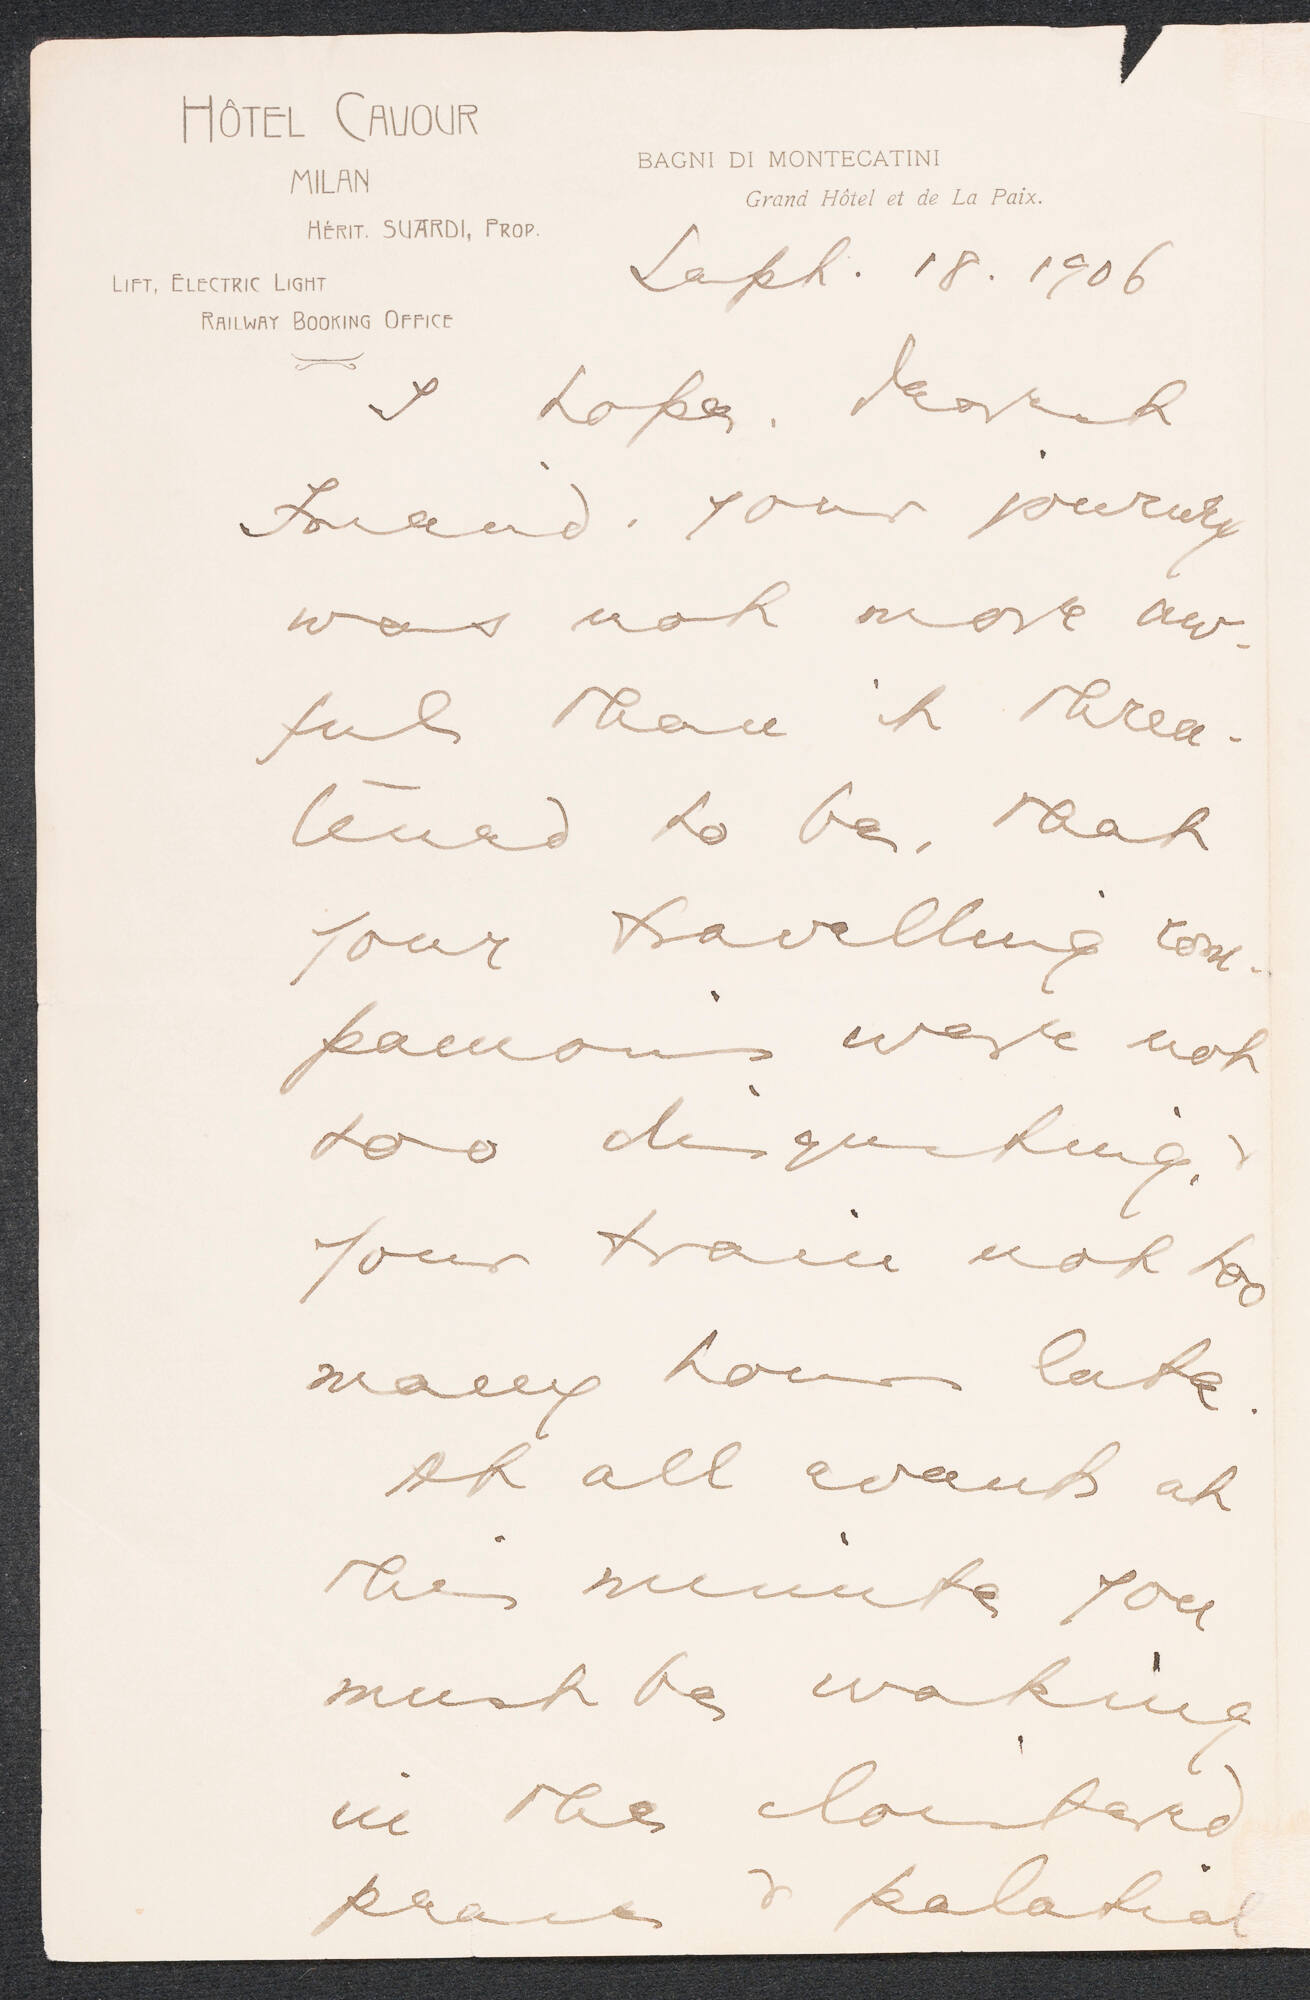 HÔTEL CAVOUR
MILAN
HÉRIT. SUARDI, PROP.
LIFT, ELECTRIC LIGHT
RAILWAY BOOKING OFFICE
BAGNI DI MONTECATINI
Grand Hôtel et de La Paix.
Sept. 18. 1906
I hope, dearest
Friend, your journey
was not more aw-
ful than it threa-
tened to be, that
your travelling com-
panions were not
too disgusting, &
your train not too
many hours late.
At all events at
this minute you
must be waking
in the cloistered
peace & palatial